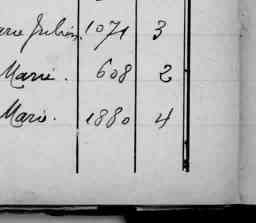 arie Julion. 1071 3
Marie. 608 2
Marie. 1880 4